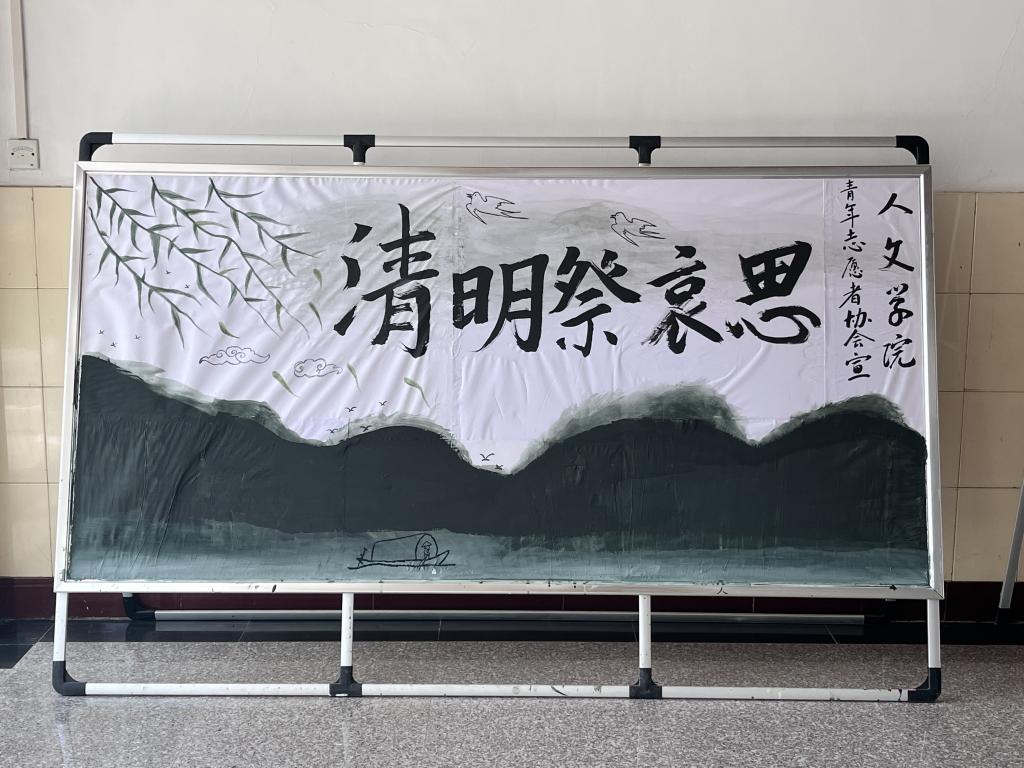 清明祭哀思
人文学院
青年志愿者协会宣